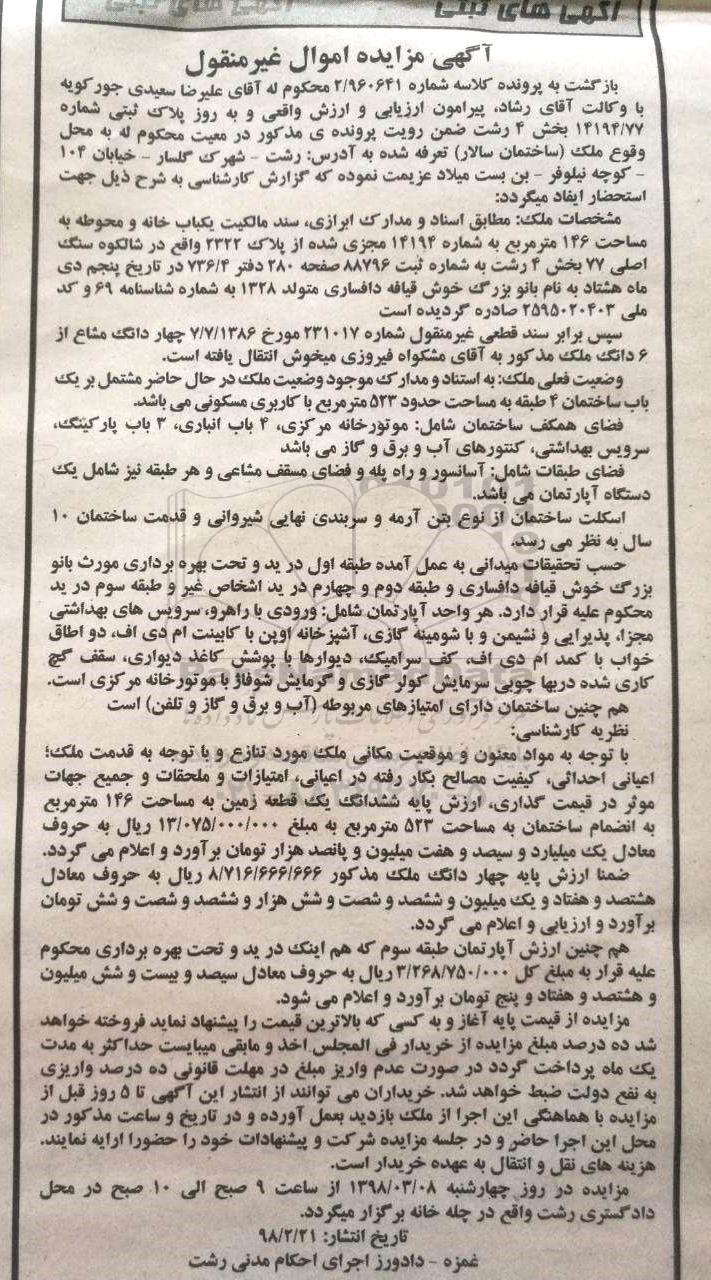 آگهی های ثبتی
آگهی مزایده اموال غیرمنقول
بازگشت به پرونده کلاسه شماره ۲/۹۶۰۶۴۱ محکوم له آقای علیرضا سعیدی جورکویه
با وکالت آقای رشاد، پیرامون ارزیابی و ارزش واقعی و به روز پلاک ثبتی شماره
۱۴۱۹۴/۷۷ بخش ۴ رشت ضمن رویت پرونده ی مذکور در معیت محکوم له به محل
وقوع ملک (ساختمان سالار) تعرفه شده به آدرس: رشت - شهرک گلسار - خیابان ۱۰۴
- کوچه نیلوفر - بن بست میلاد عزیمت نموده که گزارش کارشناسی به شرح ذیل جهت
استحضار ایفاد میگردد:
مشخصات ملک: مطابق اسناد و مدارک ابرازی، سند مالکیت یکباب خانه و محوطه به
مساحت ۱۴۶ مترمربع به شماره ۱۴۱۹۴ مجزی شده از پلاک ۲۳۲۲ واقع در شالکوه سنگ
اصلی ۷۷ بخش ۴ رشت به شماره ثبت ۸۸۷۹۶ صفحه ۲۸۰ دفتر ۷۳۶/۴ در تاریخ پنجم دی
ماه هشتاد به نام بانو بزرگ خوش قیافه دافساری متولد ۱۳۲۸ به شماره شناسنامه ۶۹ و کد
ملی ۲۵۹۵۰۲۰۴۰۳ صادره گردیده است
سپس برابر سند قطعی غیرمنقول شماره ۲۳۱۰۱۷ مورخ ۷/۷/۱۳۸۶ چهار دانگ مشاع از
۶ دانگ ملک مذکور به آقای مشکواه فیروزی میخوش انتقال یافته است.
وضعیت فعلی ملک: به استناد و مدارک موجود وضعیت ملک در حال حاضر مشتمل بر یک
باب ساختمان ۴ طبقه به مساحت حدود ۵۲۳ مترمربع با کاربری مسکونی می باشد.
فضای همکف ساختمان شامل: موتورخانه مرکزی، ۴ باب انباری، ۳ باب پارکینگ،
سرویس بهداشتی، کنتورهای آب و برق و گاز می باشد
فضای طبقات شامل: آسانسور و راه پله و فضای مسقف مشاعی و هر طبقه نیز شامل یک
دستگاه آپارتمان می باشد.
اسکلت ساختمان از نوع بتن آرمه و سربندی نهایی شیروانی و قدمت ساختمان ۱۰
سال به نظر می رسد.
حسب تحقیقات میدانی به عمل آمده طبقه اول در ید و تحت بهره برداری مورث بانو
بزرگ خوش قیافه دافساری و طبقه دوم و چهارم در ید اشخاص غیر و طبقه سوم در ید
محکوم علیه قرار دارد. هر واحد آپارتمان شامل: ورودی با راهرو، سرویس های بهداشتی
مجزا، پذیرایی و نشیمن و با شومینه گازی، آشپزخانه اوپن با کابینت ام دی اف، دو اطاق
خواب با کمد ام دی اف، کف سرامیک، دیوارها با پوشش کاغذ دیواری، سقف گچ
کاری شده دربها چوبی سرمایش کولر گازی و گرمایش شوفاژ با موتورخانه مرکزی است.
هم چنین ساختمان دارای امتیازهای مربوطه (آب و برق و گاز و تلفن) است
نظریه کارشناسی:
با توجه به مواد معنون و موقعیت مکانی ملک مورد تنازع و با توجه به قدمت ملک؛
اعیانی احداثی، کیفیت مصالح بکار رفته در اعیانی، امتیازات و ملحقات و جمیع جهات
موثر در قیمت گذاری، ارزش پایه ششدانگ یک قطعه زمین به مساحت ۱۴۶ مترمربع
به انضمام ساختمان به مساحت ۵۲۳ مترمربع به مبلغ ۱۳/۰۷۵/۰۰۰/۰۰۰ ریال به حروف
معادل یک میلیارد و سیصد و هفت میلیون و پانصد هزار تومان برآورد و اعلام می گردد.
ضمنا ارزش پایه چهار دانگ ملک مذکور ۸/۷۱۶/۶۶۶/۶۶۶ ریال به حروف معادل
هشتصد و هفتاد و یک میلیون و ششصد و شصت و شش هزار و ششصد و شصت و شش تومان
برآورد و ارزیابی و اعلام می گردد.
هم چنین ارزش آپارتمان طبقه سوم که هم اینک در ید و تحت بهره برداری محکوم
علیه قرار به مبلغ کل ۳/۲۶۸/۷۵۰/۰۰۰ ریال به حروف معادل سیصد و بیست و شش میلیون
و هشتصد و هفتاد و پنج تومان برآورد و اعلام می شود.
مزایده از قیمت پایه آغاز و به کسی که بالاترین قیمت را پیشنهاد نماید فروخته خواهد
شد ده درصد مبلغ مزایده از خریدار فی المجلس اخذ و مابقی میبایست حداکثر به مدت
یک ماه پرداخت گردد در صورت عدم واریز مبلغ در مهلت قانونی ده درصد واریزی
به نفع دولت ضبط خواهد شد. خریداران می توانند از انتشار این آگهی تا ۵ روز قبل از
مزایده با هماهنگی این اجرا از ملک بازدید بعمل آورده و در تاریخ و ساعت مذکور در
محل این اجرا حاضر و در جلسه مزایده شرکت و پیشنهادات خود را حضورا ارایه نمایند.
هزینه های نقل و انتقال به عهده خریدار است.
مزایده در روز چهارشنبه ۱۳۹۸/۰۳/۰۸ از ساعت ۹ صبح الی ۱۰ صبح در محل
دادگستری رشت واقع در چله خانه برگزار میگردد.
تاریخ انتشار: ۹۸/۲/۲۱
غمزه - دادورز اجرای احکام مدنی رشت